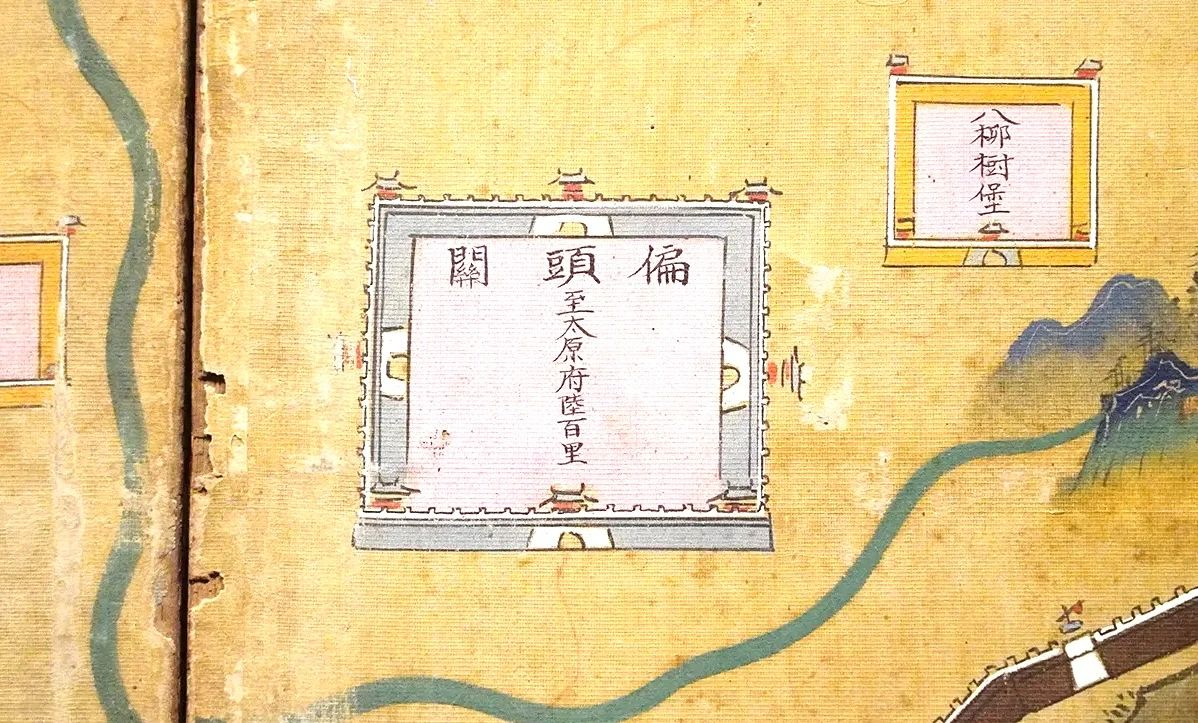 八柳樹堡
偏頭關
至太原府陸百里